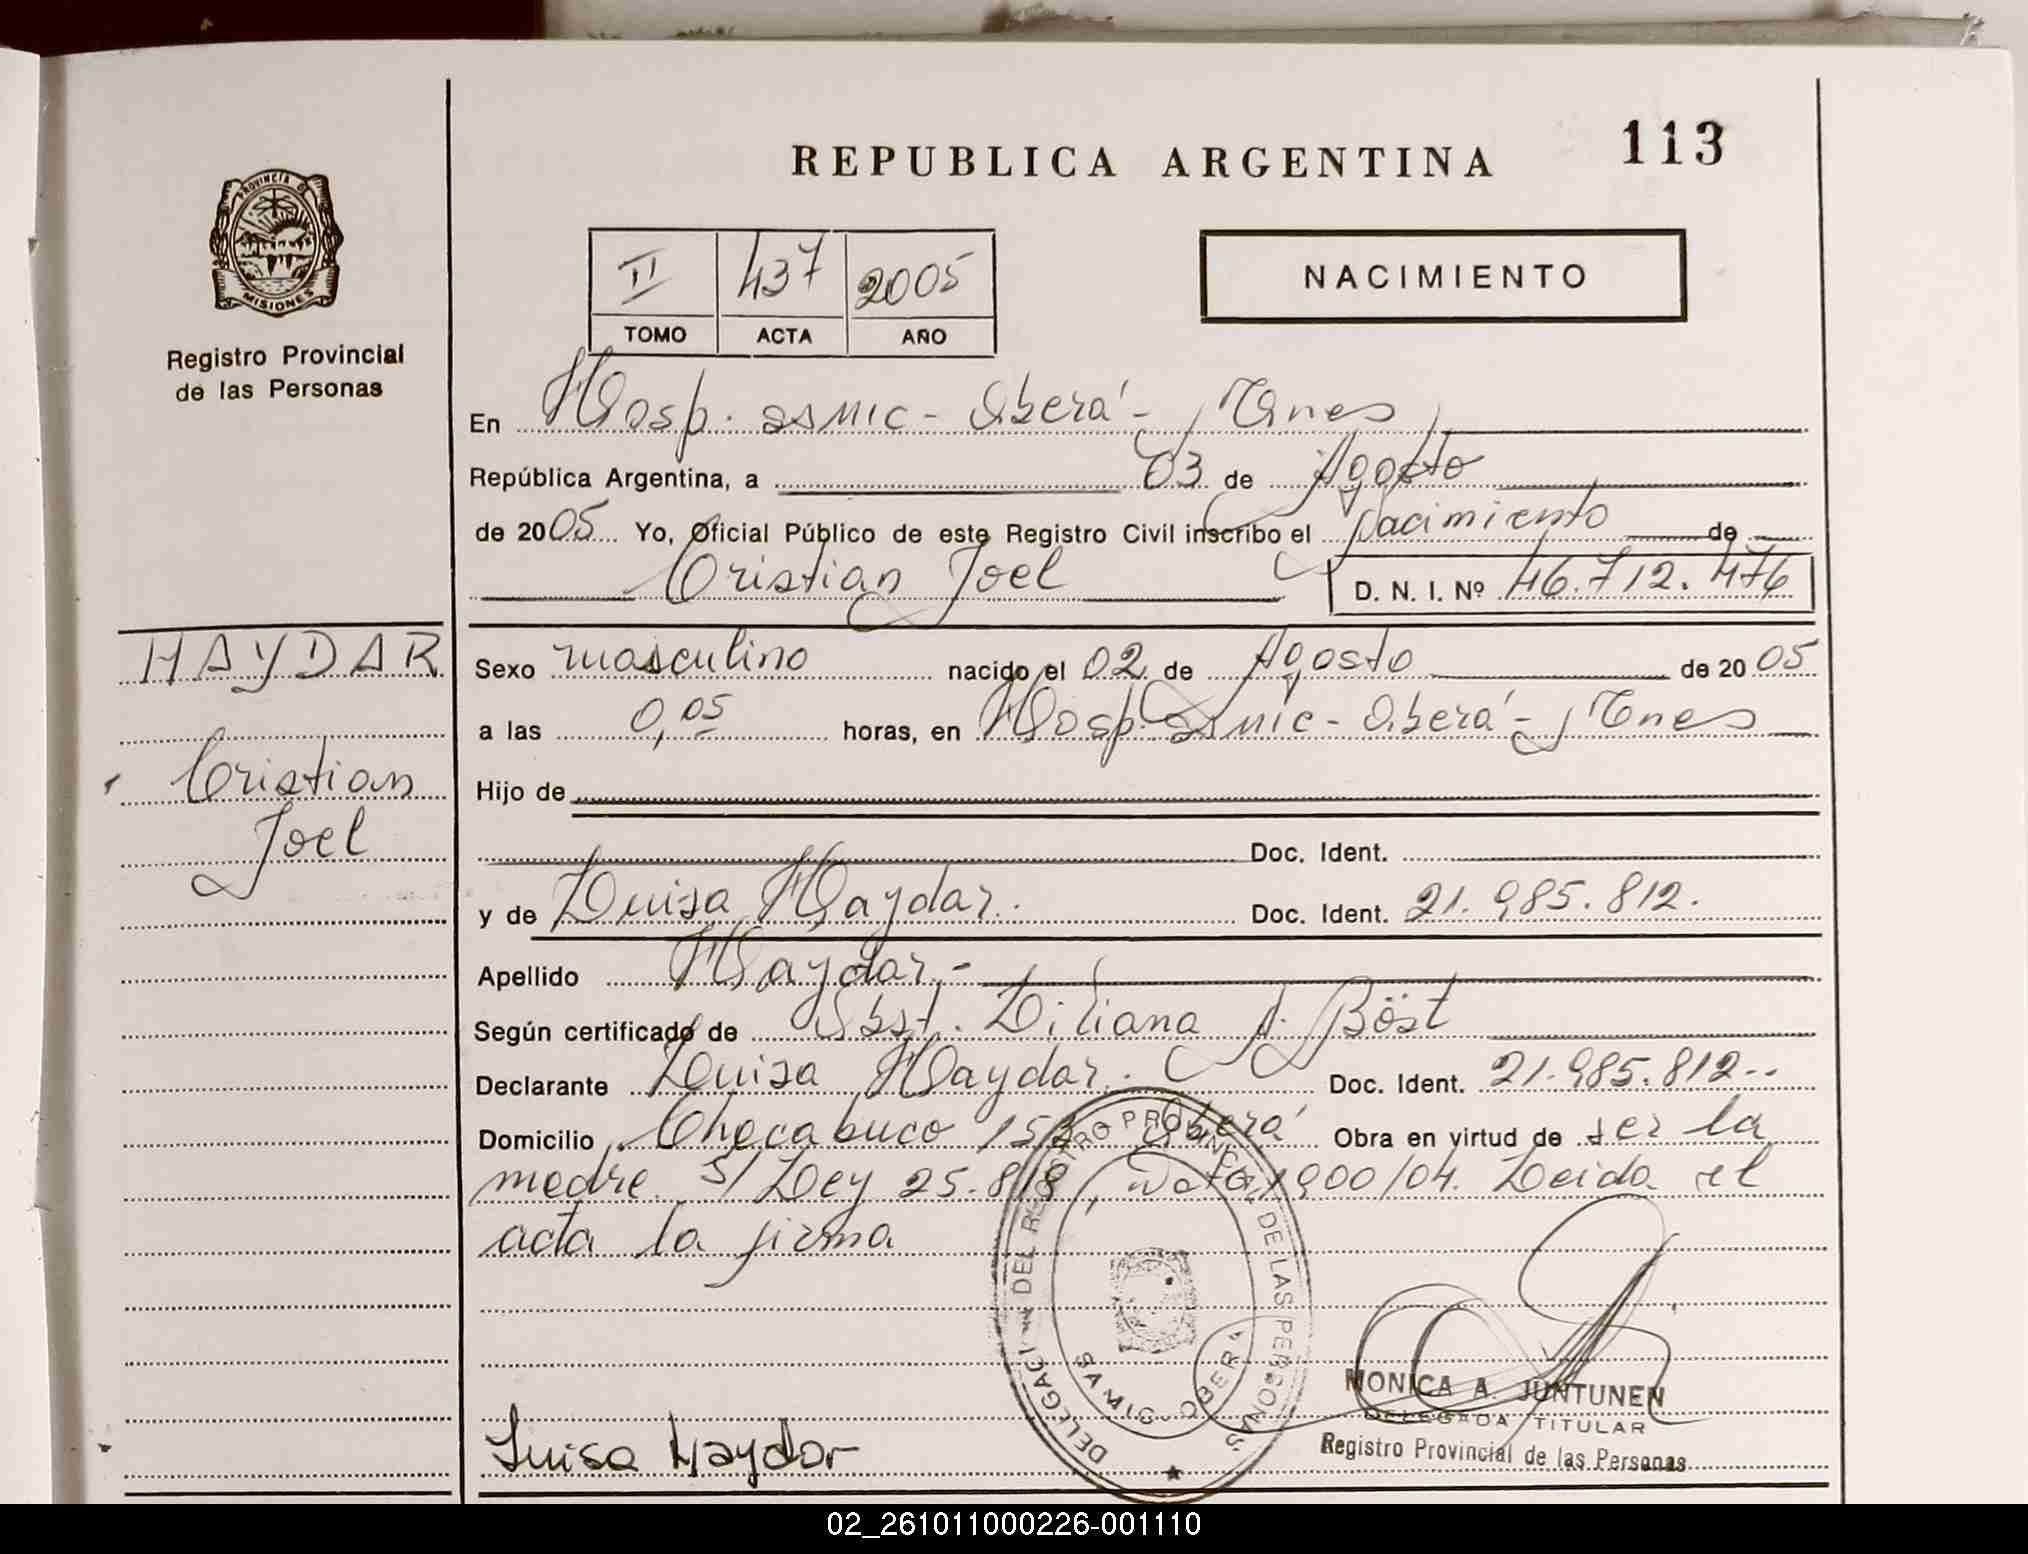 REPUBLICA ARGENTINA
113
PROVINCIA D
MISIONES
Registro Provincial
de las Personas
II 437 2005
TOMO ACTA AÑO
NACIMIENTO
En Hosp. Samic - Oberá - Mnes
República Argentina, a 03 de Agosto
de 2005 Yo, Oficial Público de este Registro Civil inscribo el Nacimiento de
Cristian Joel D. N. I. Nº 46.712.476
HAYDAR
Cristian
Joel
Sexo masculino nacido el 02 de Agosto de 2005
a las 0,05 horas, en Hosp. Samic - Oberá - Mnes
Hijo de
Doc. Ident.
y de Luisa Haydar. Doc. Ident. 21.985.812.
Apellido Haydar.-
Según certificado de Obst. Liliana A. Böst
Declarante Luisa Haydar. Doc. Ident. 21.985.812..
Domicilio Chacabuco Oberá Obra en virtud de ser la
madre. S/ Ley 25.818, 1900/04. Leida el
acta la firma
DELEGACION DEL REGISTRO PROVINCIAL DE LAS PERSONAS
SAMIC - OBERA
MONICA A. JUNTUNEN
DELEGADA TITULAR
Registro Provincial de las Personas
Luisa Haydar
02_261011000226-001110